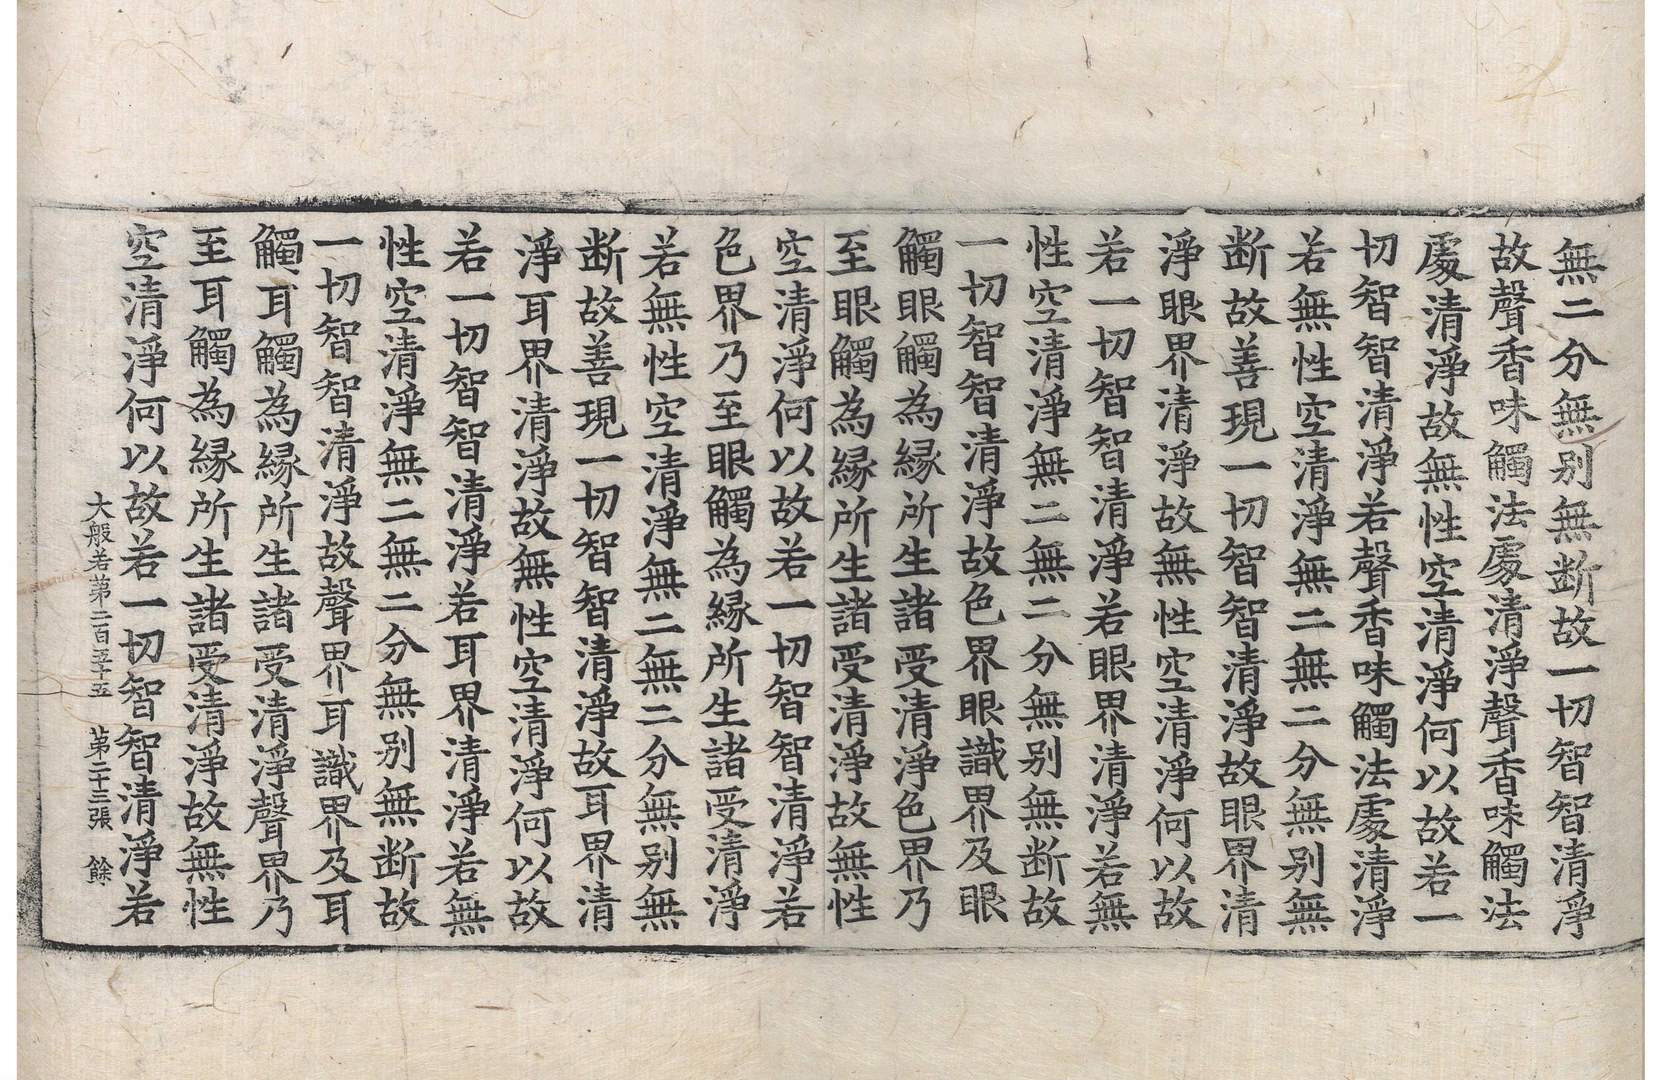 無二分無别無断故一切智智清淨
故聲香味觸法處清淨聲香味觸法
處清淨故無性空清淨何以故若一
切智智清淨若聲香味觸法處清淨
若無性空清淨無二無二分無别無
断故善現一切智智清淨故眼界清
淨眼界清淨故無性空清淨何以故
若一切智智清淨若眼界清淨若無
性空清淨無二無二分無别無断故
一切智智清淨故色界眼識界及眼
觸眼觸為縁所生諸受清淨色界乃
至眼觸為縁所生諸受清淨故無性
空清淨何以故若一切智智清淨若
色界乃至眼觸為縁所生諸受清淨
若無性空清淨無二無二分無别無
断故善現一切智智清淨故耳界清
淨耳界清淨故無性空清淨何以故
若一切智智清淨若耳界清淨若無
性空清淨無二無二分無别無断故
一切智智清淨故聲界耳識界及耳
觸耳觸為縁所生諸受清淨聲界乃
至耳觸為縁所生諸受清淨故無性
空清淨何以故若一切智智清淨若
大般若第二百五十五 第二十三張 餘